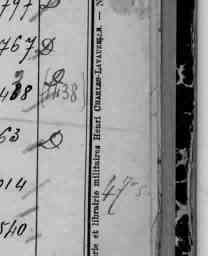 797 D
767 D
D
488 438
63 D
014
540
rie et librairie militaires Henri CHARLES-LAVAUZELLE. — N
475